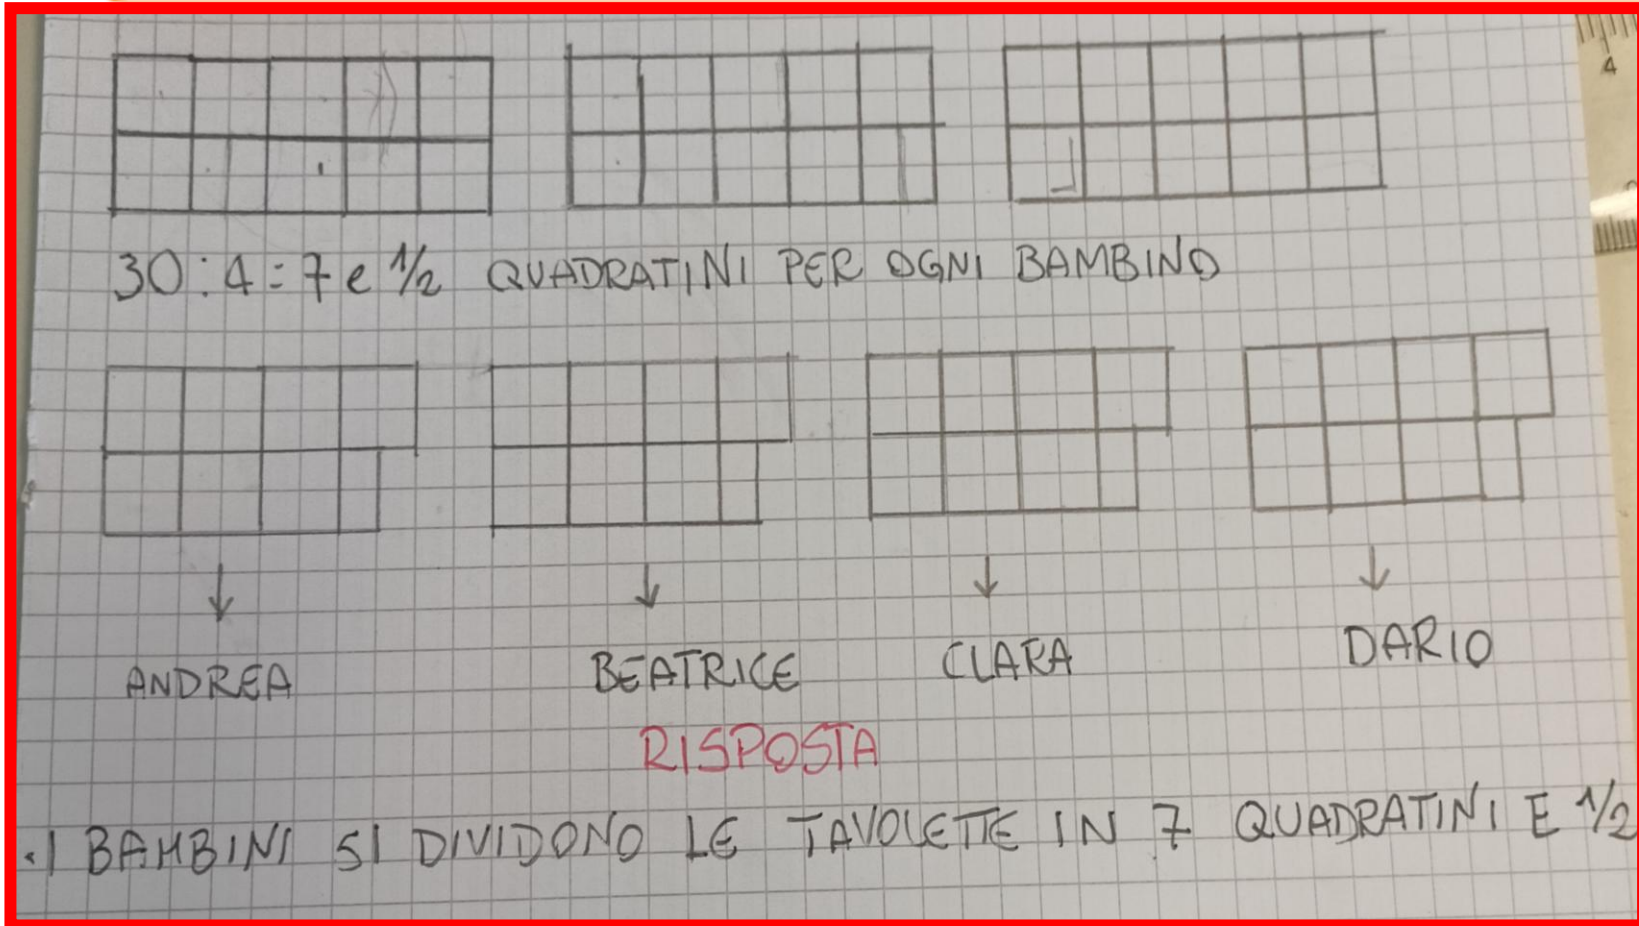 4
30:4=7 e 1/2 QUADRATINI PER OGNI BAMBINO
ANDREA BEATRICE CLARA DARIO
RISPOSTA
.I BAMBINI SI DIVIDONO LE TAVOLETTE IN 7 QUADRATINI E 1/2